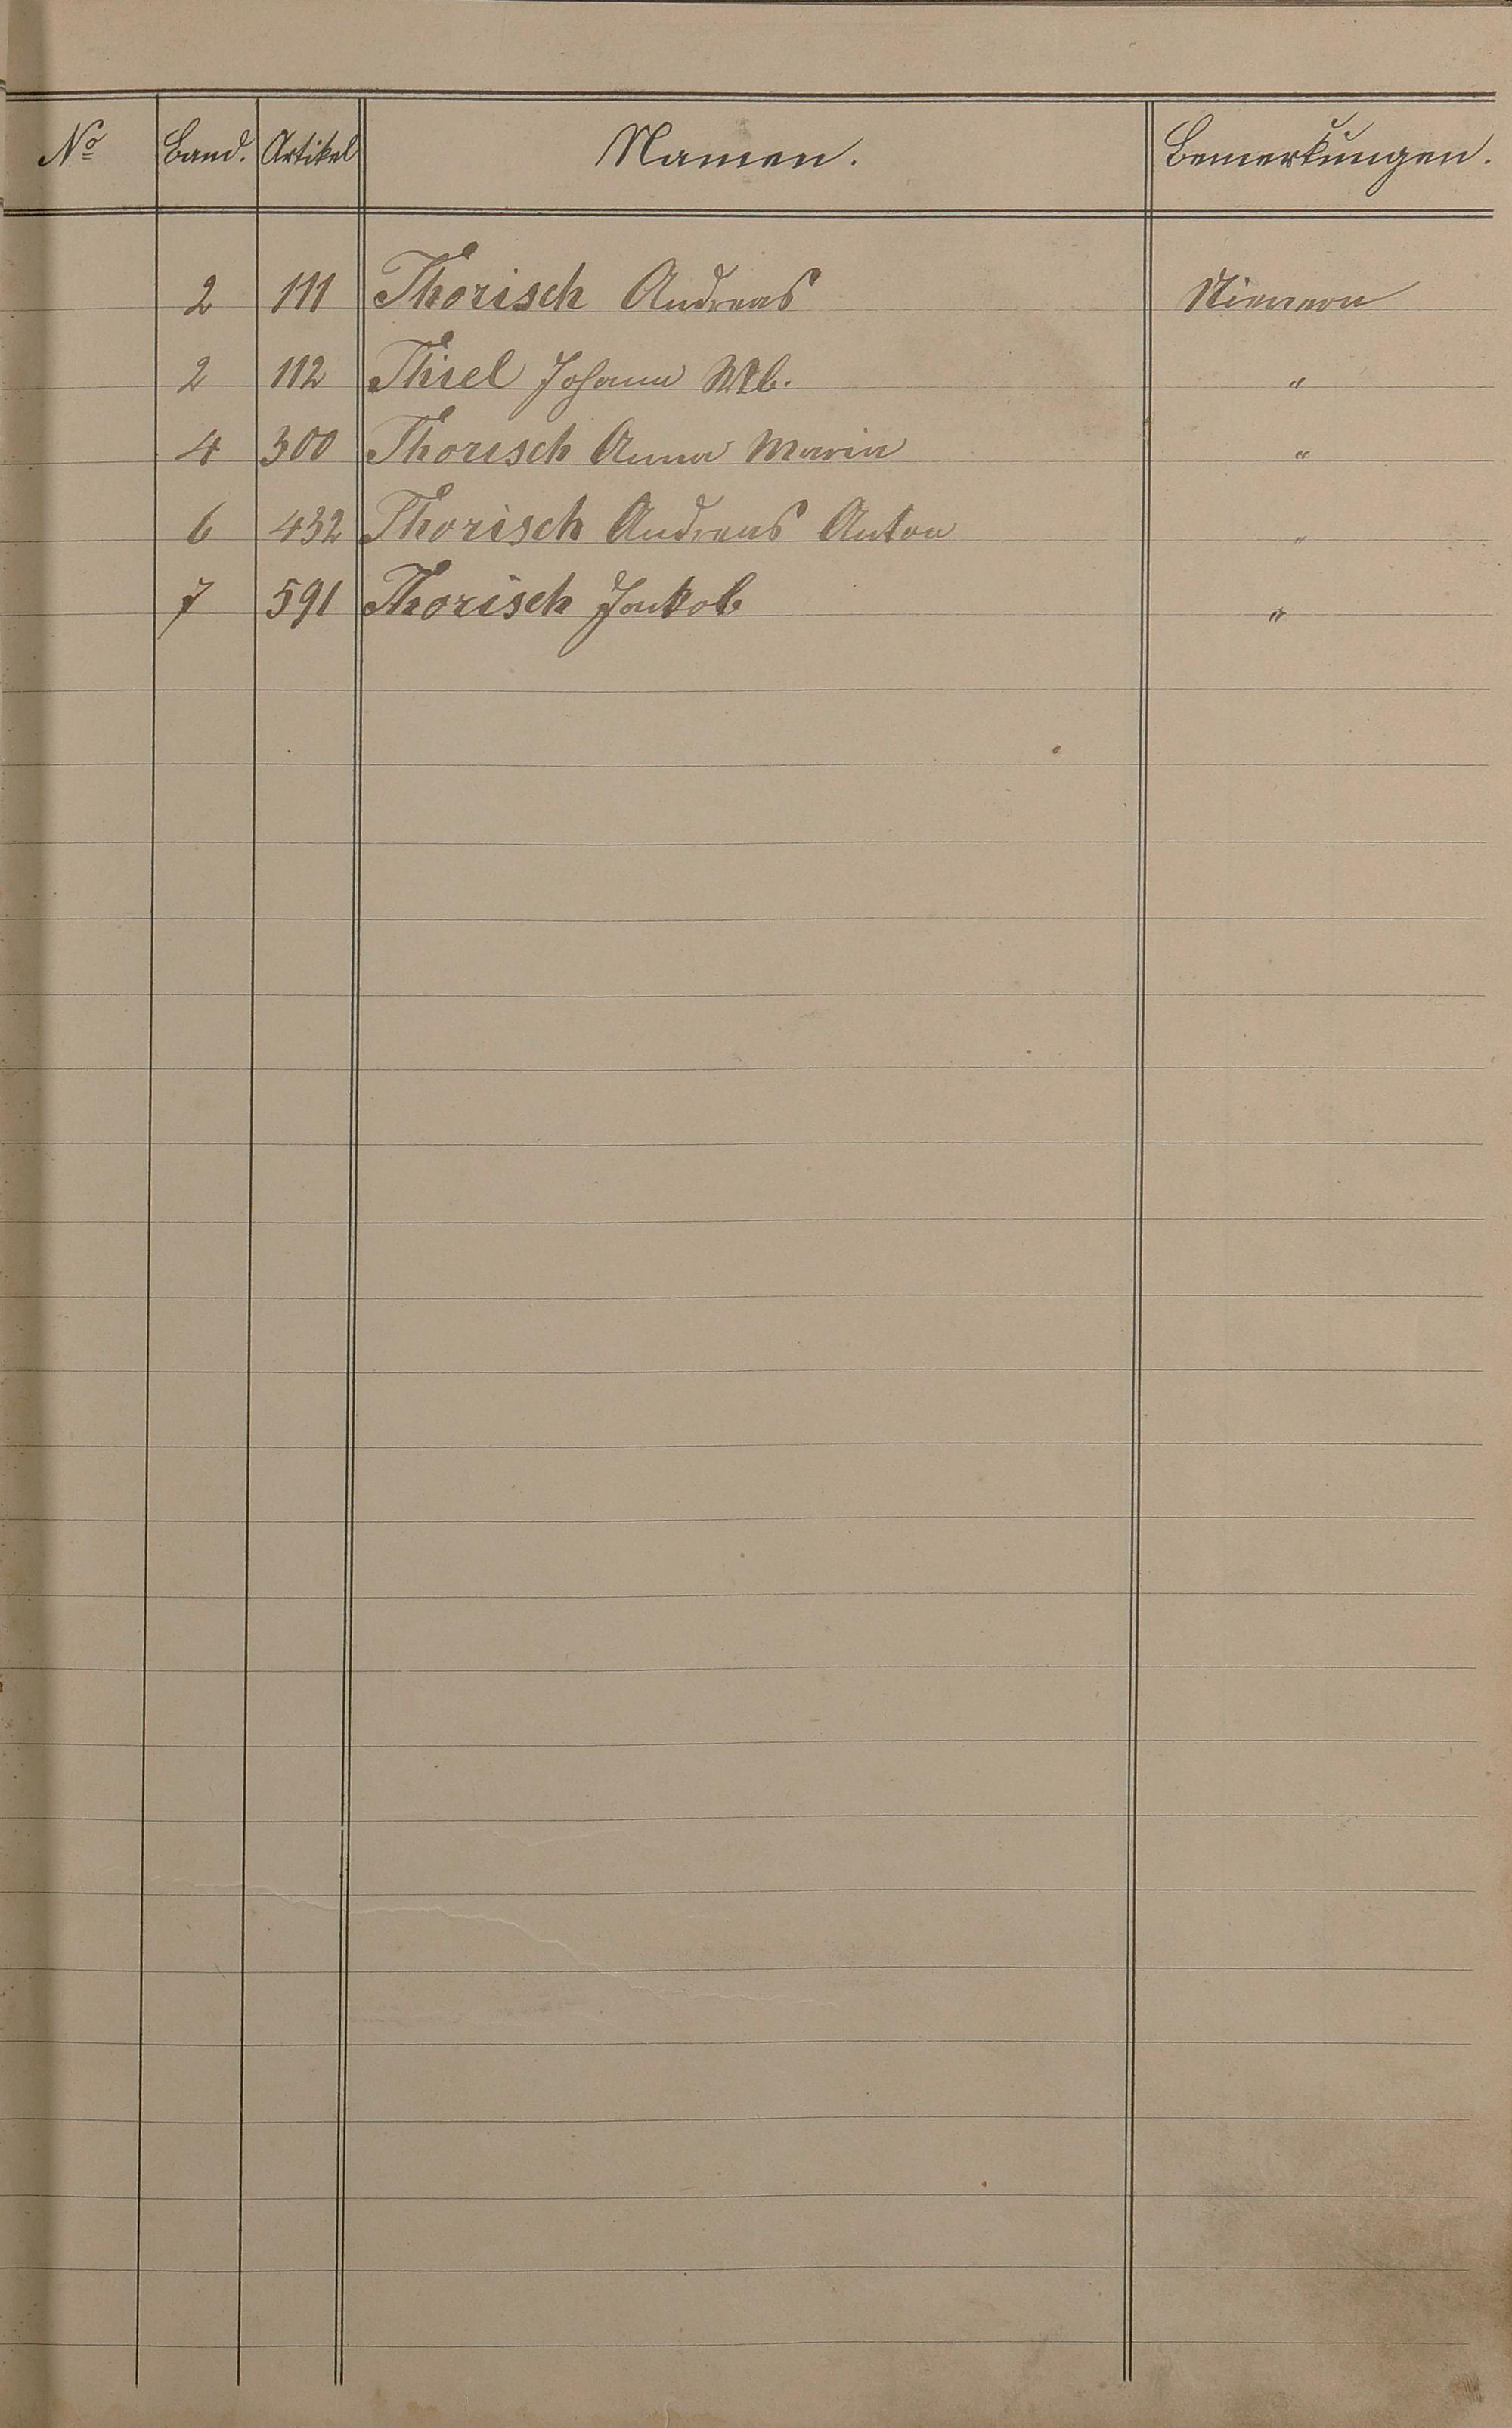 No Band. Artikel Namen. Bemerkungen.
2 111 Thorisch Andreas Nievern
2 112 Thiel Johann Wb. "
4 300 Thorisch Anna Maria "
6 432 Thorisch Andreas Anton "
7 591 Thorisch Jakob "